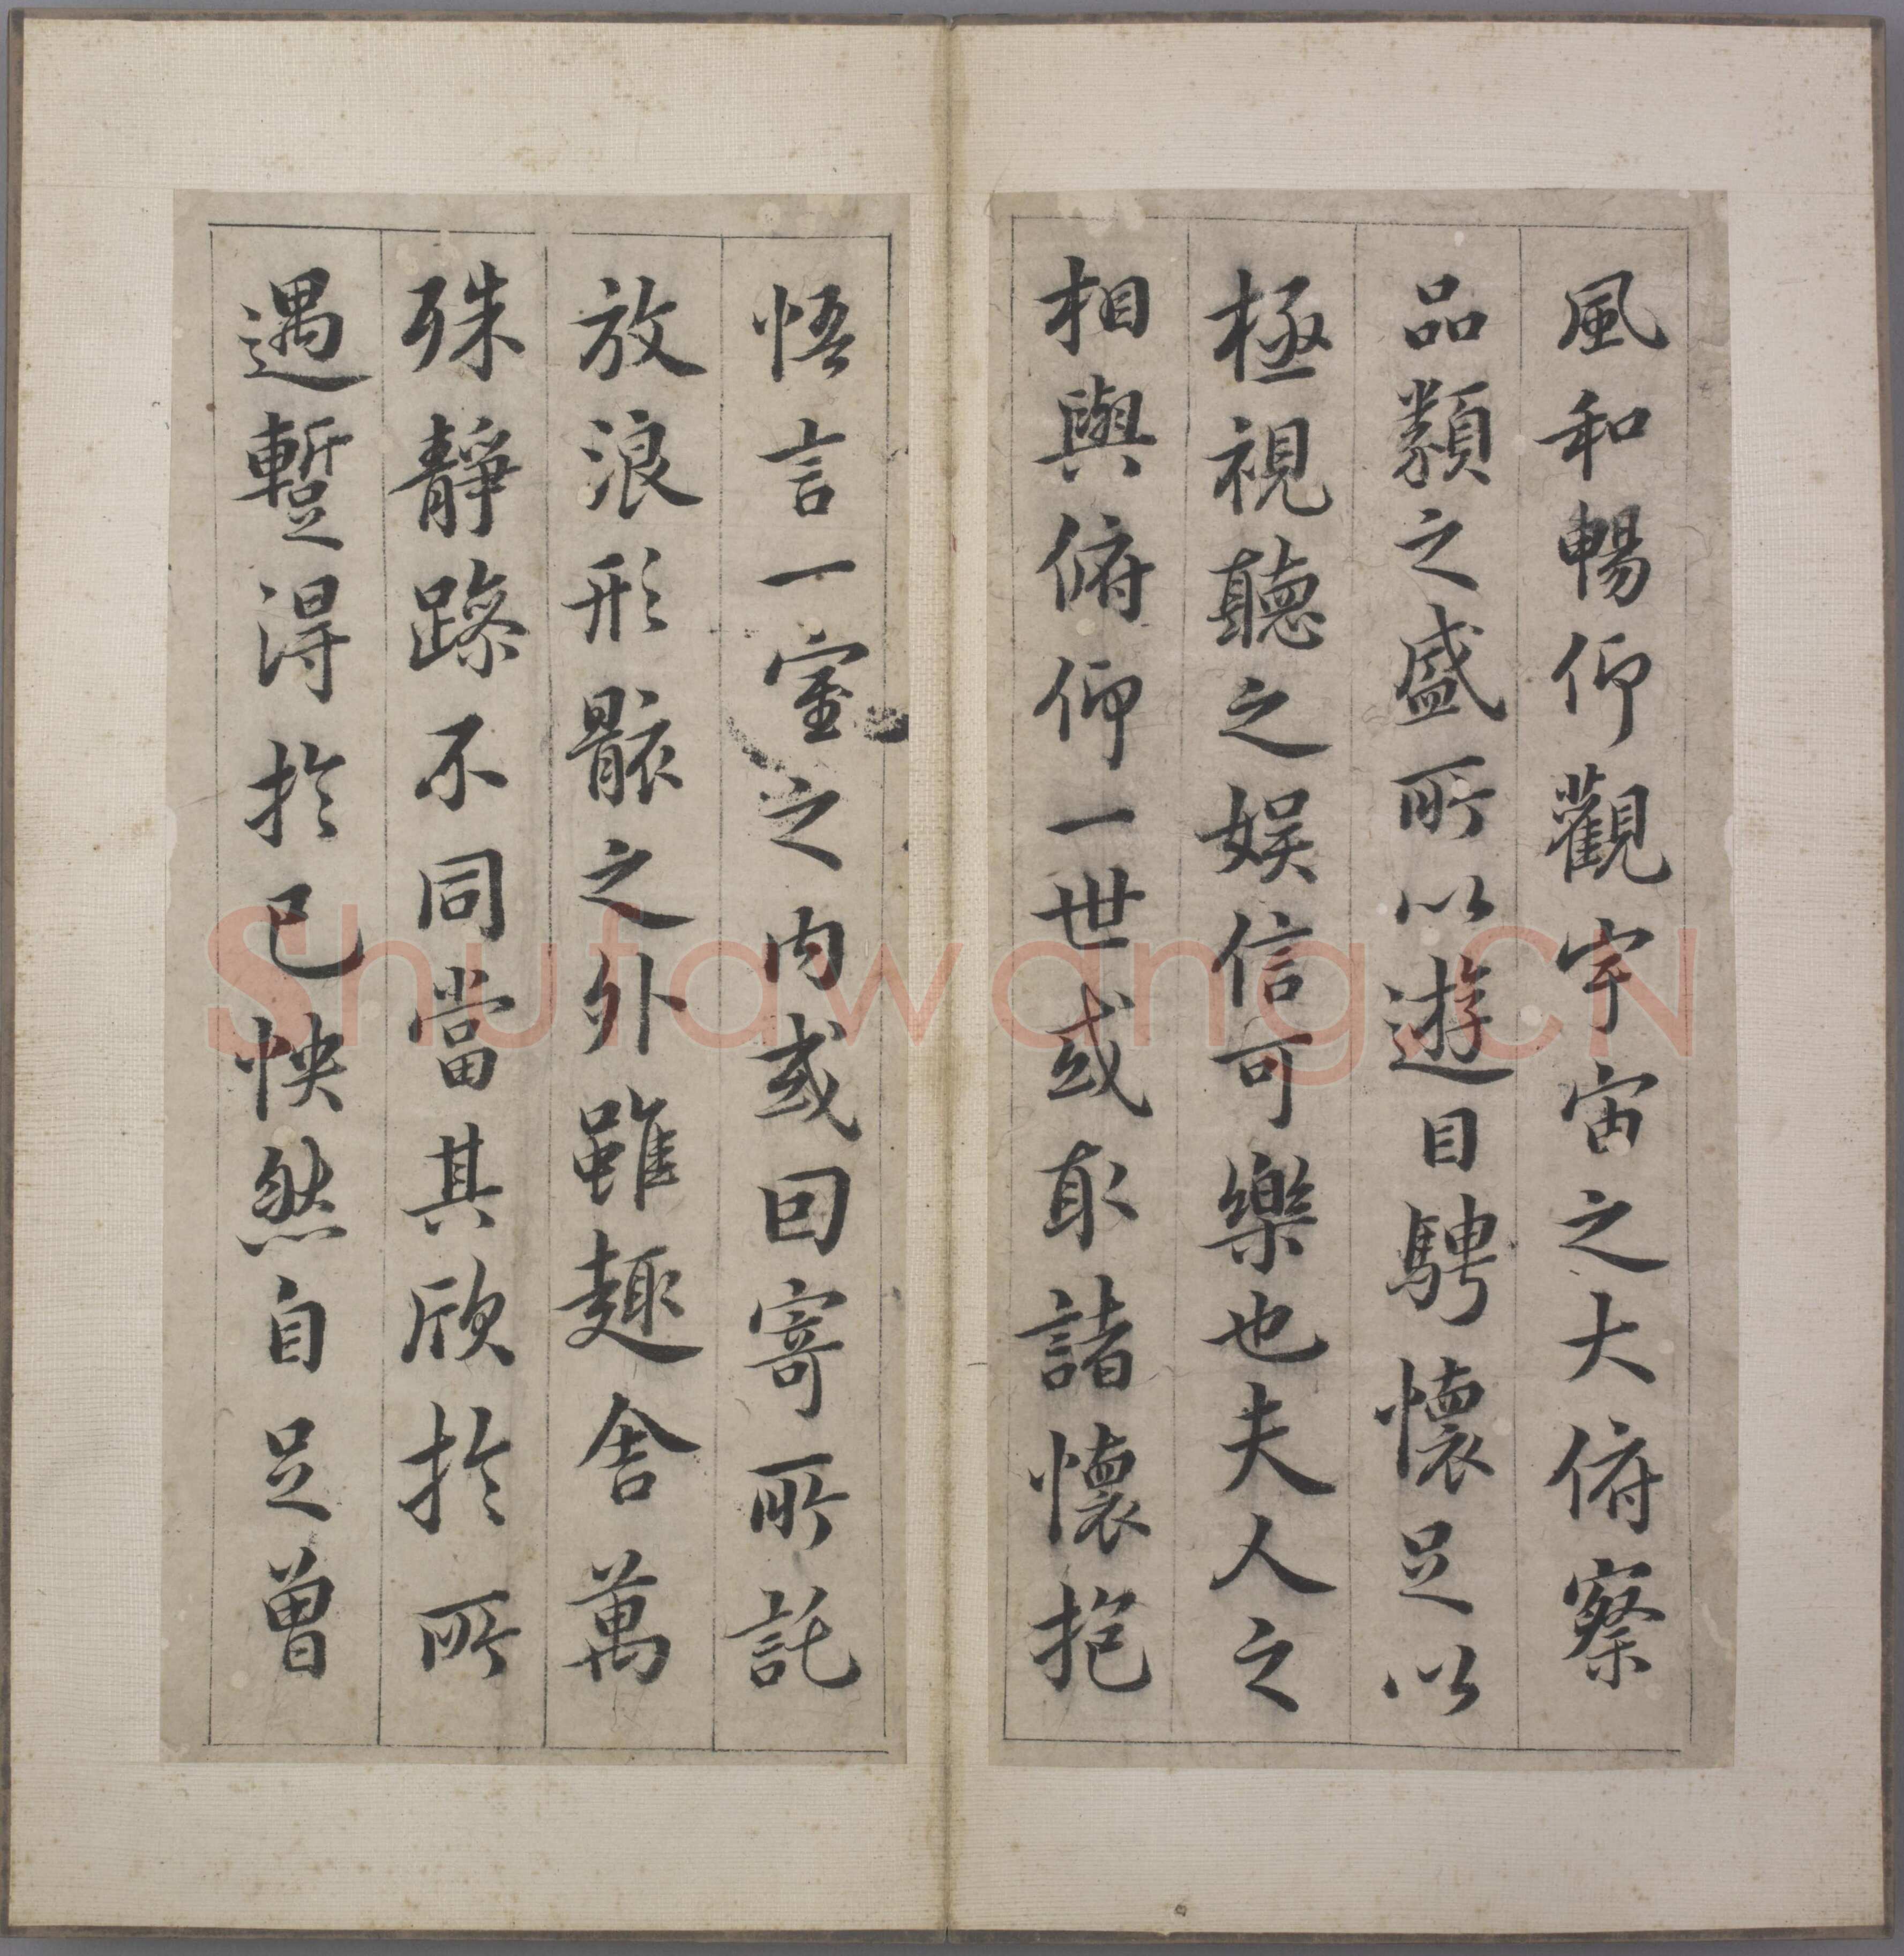 風和暢仰觀宇宙之大俯察
品類之盛所以遊目騁懷足以
極視聽之娛信可樂也夫人之
相與俯仰一世或取諸懷抱
悟言一室之內或因寄所託
放浪形骸之外雖趣舍萬
殊靜躁不同當其欣於所
遇蹔得於己怏然自足曾
Shufawang.CN